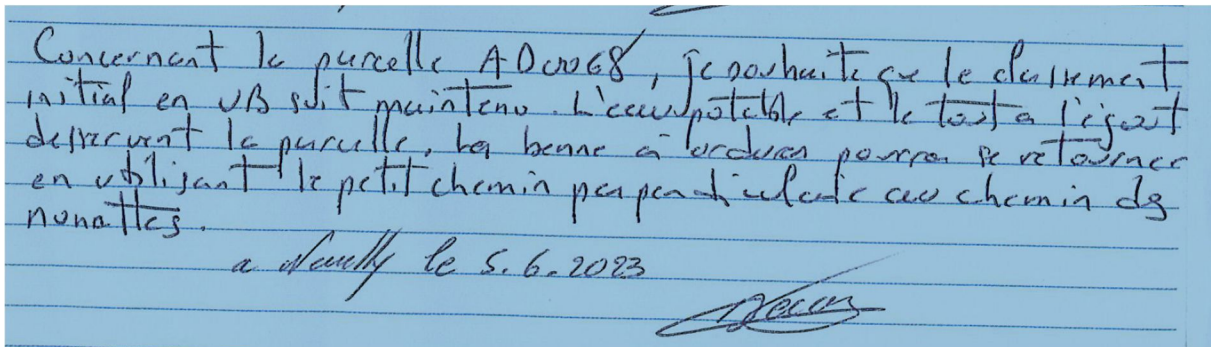 Concernant la parcelle AD0068, je souhaite que le classement
initial en UB soit maintenu. L'eau potable et le tout à l'égout
desservent la parcelle, la benne à ordures pourra se retourner
en utilisant le petit chemin perpendiculaire au chemin des
nonattes.
a Neuilly le 5.6.2023